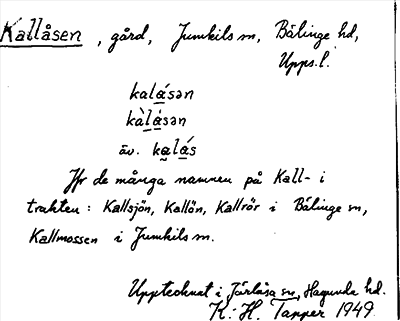 Kallåsen, gård, Jumkils sn, Bälinge hd,
Upps.l.
kalǻsən
kàlǻsən
äv. kalǻs
Jfr de många namnen på Kall- i
trakten: Kallsjön, Kallön, Kallrör i Bälinge sn,
Kallmossen i Jumkils sn.
Upptecknat i Järlåsa sn, Hagunda hd.
K.-H. Tapper 1949.